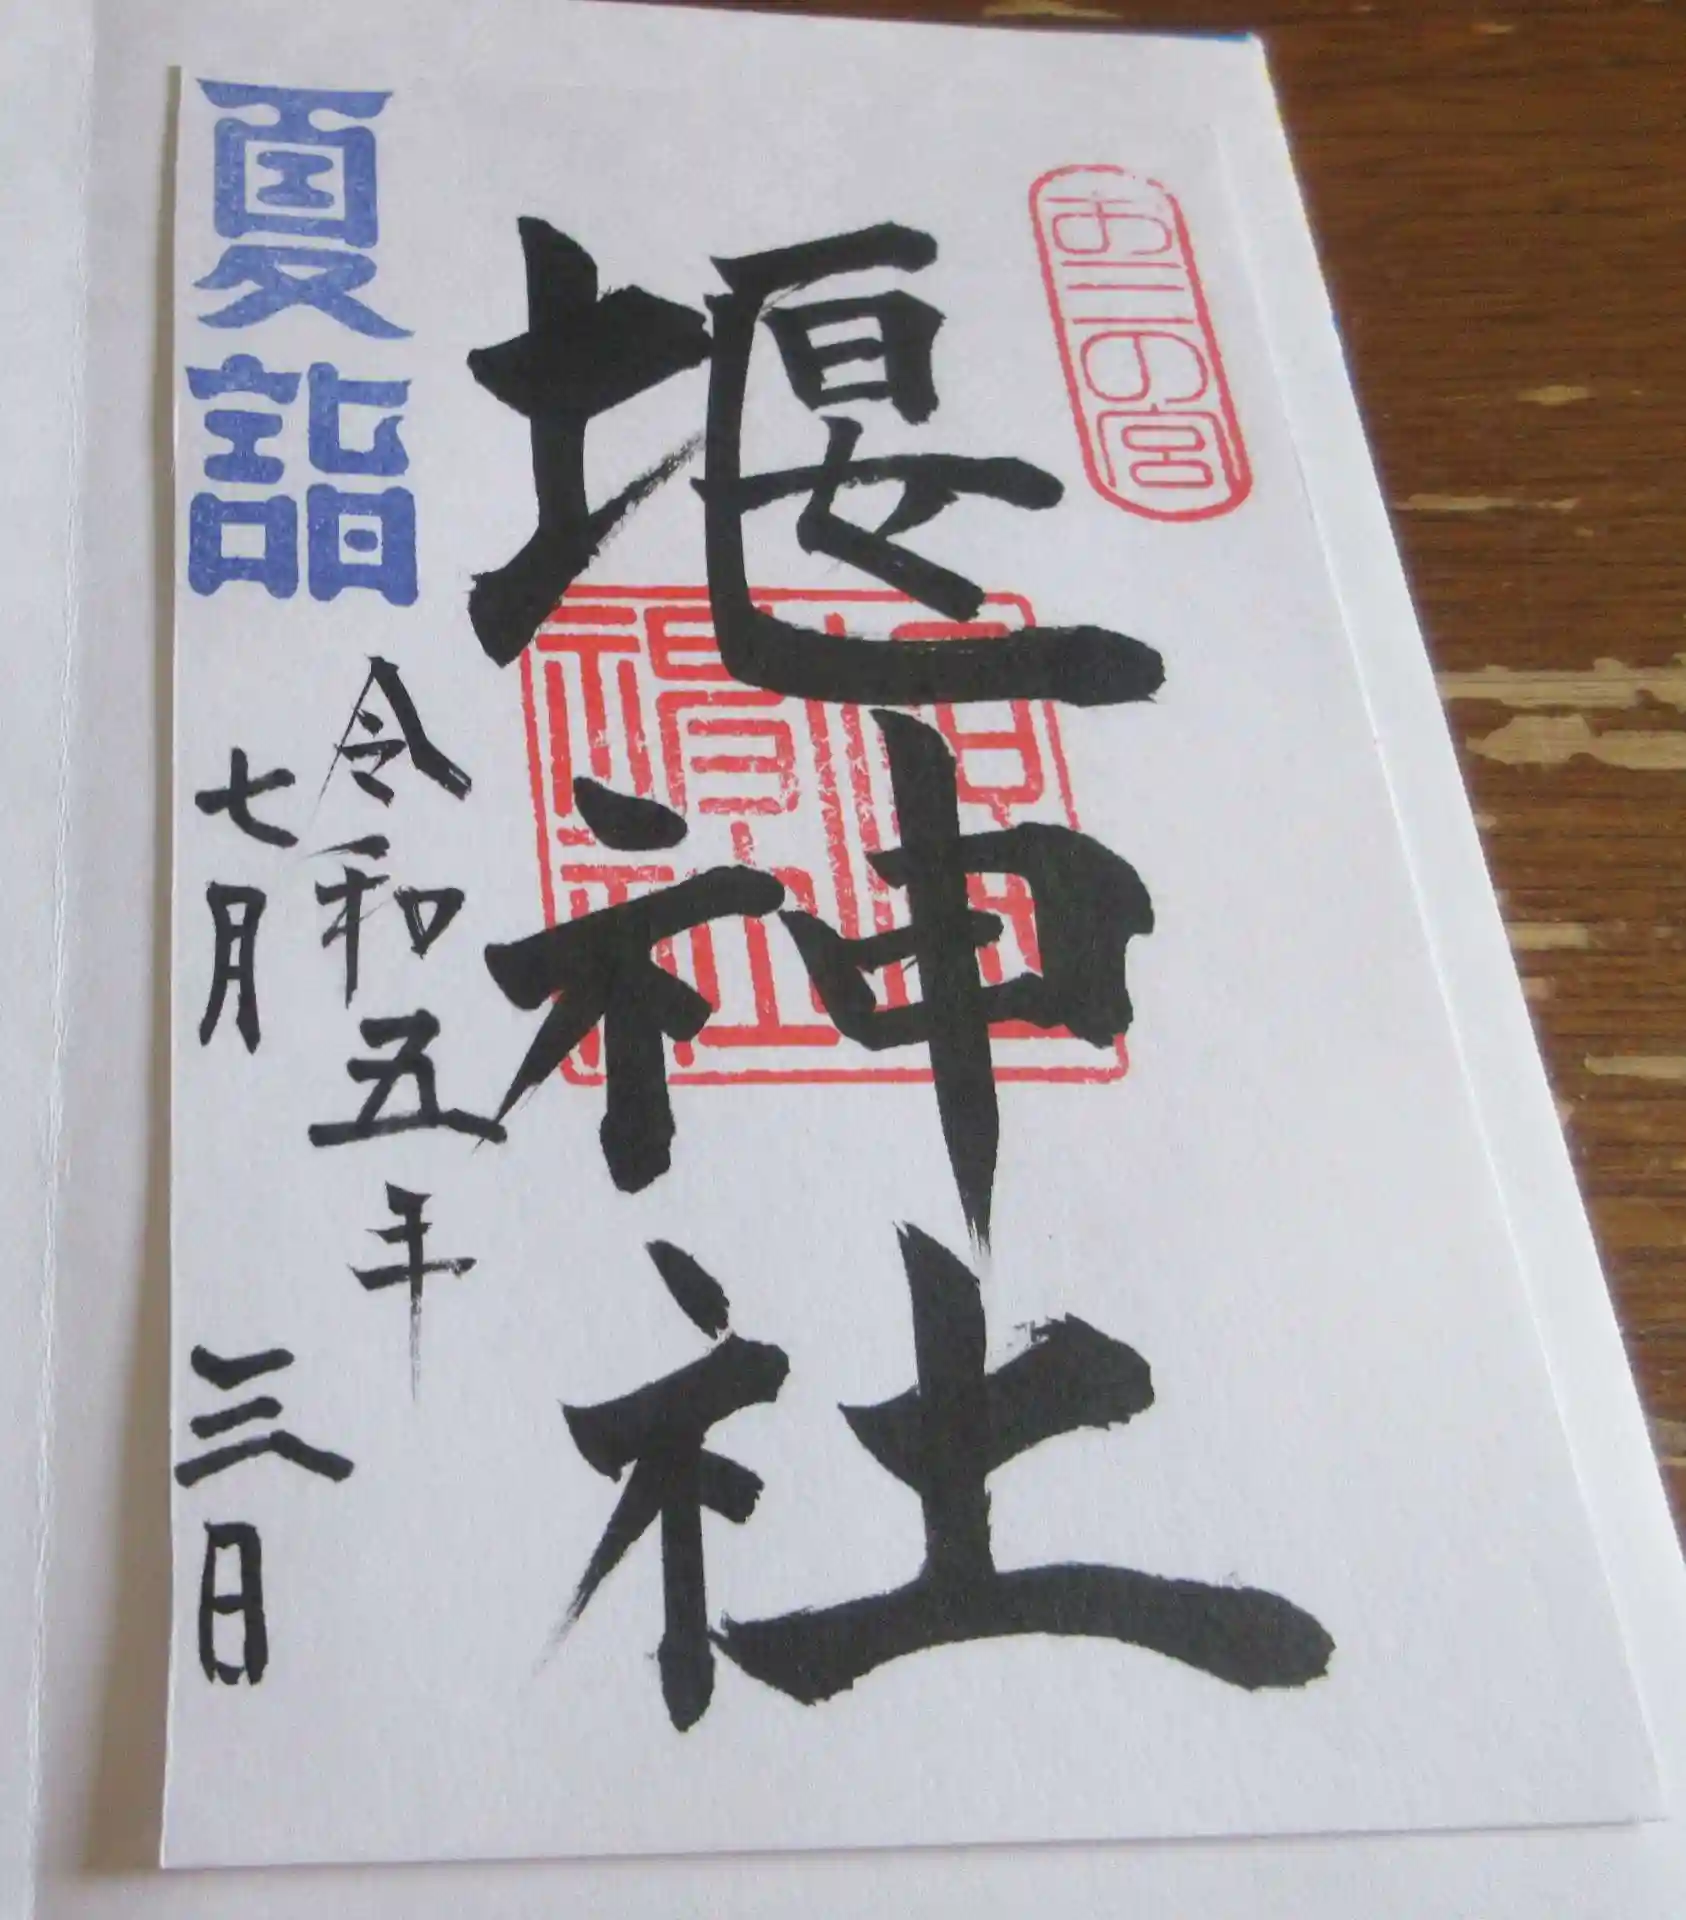 お三の宮
堰神社
夏詣
令和五年
七月三日